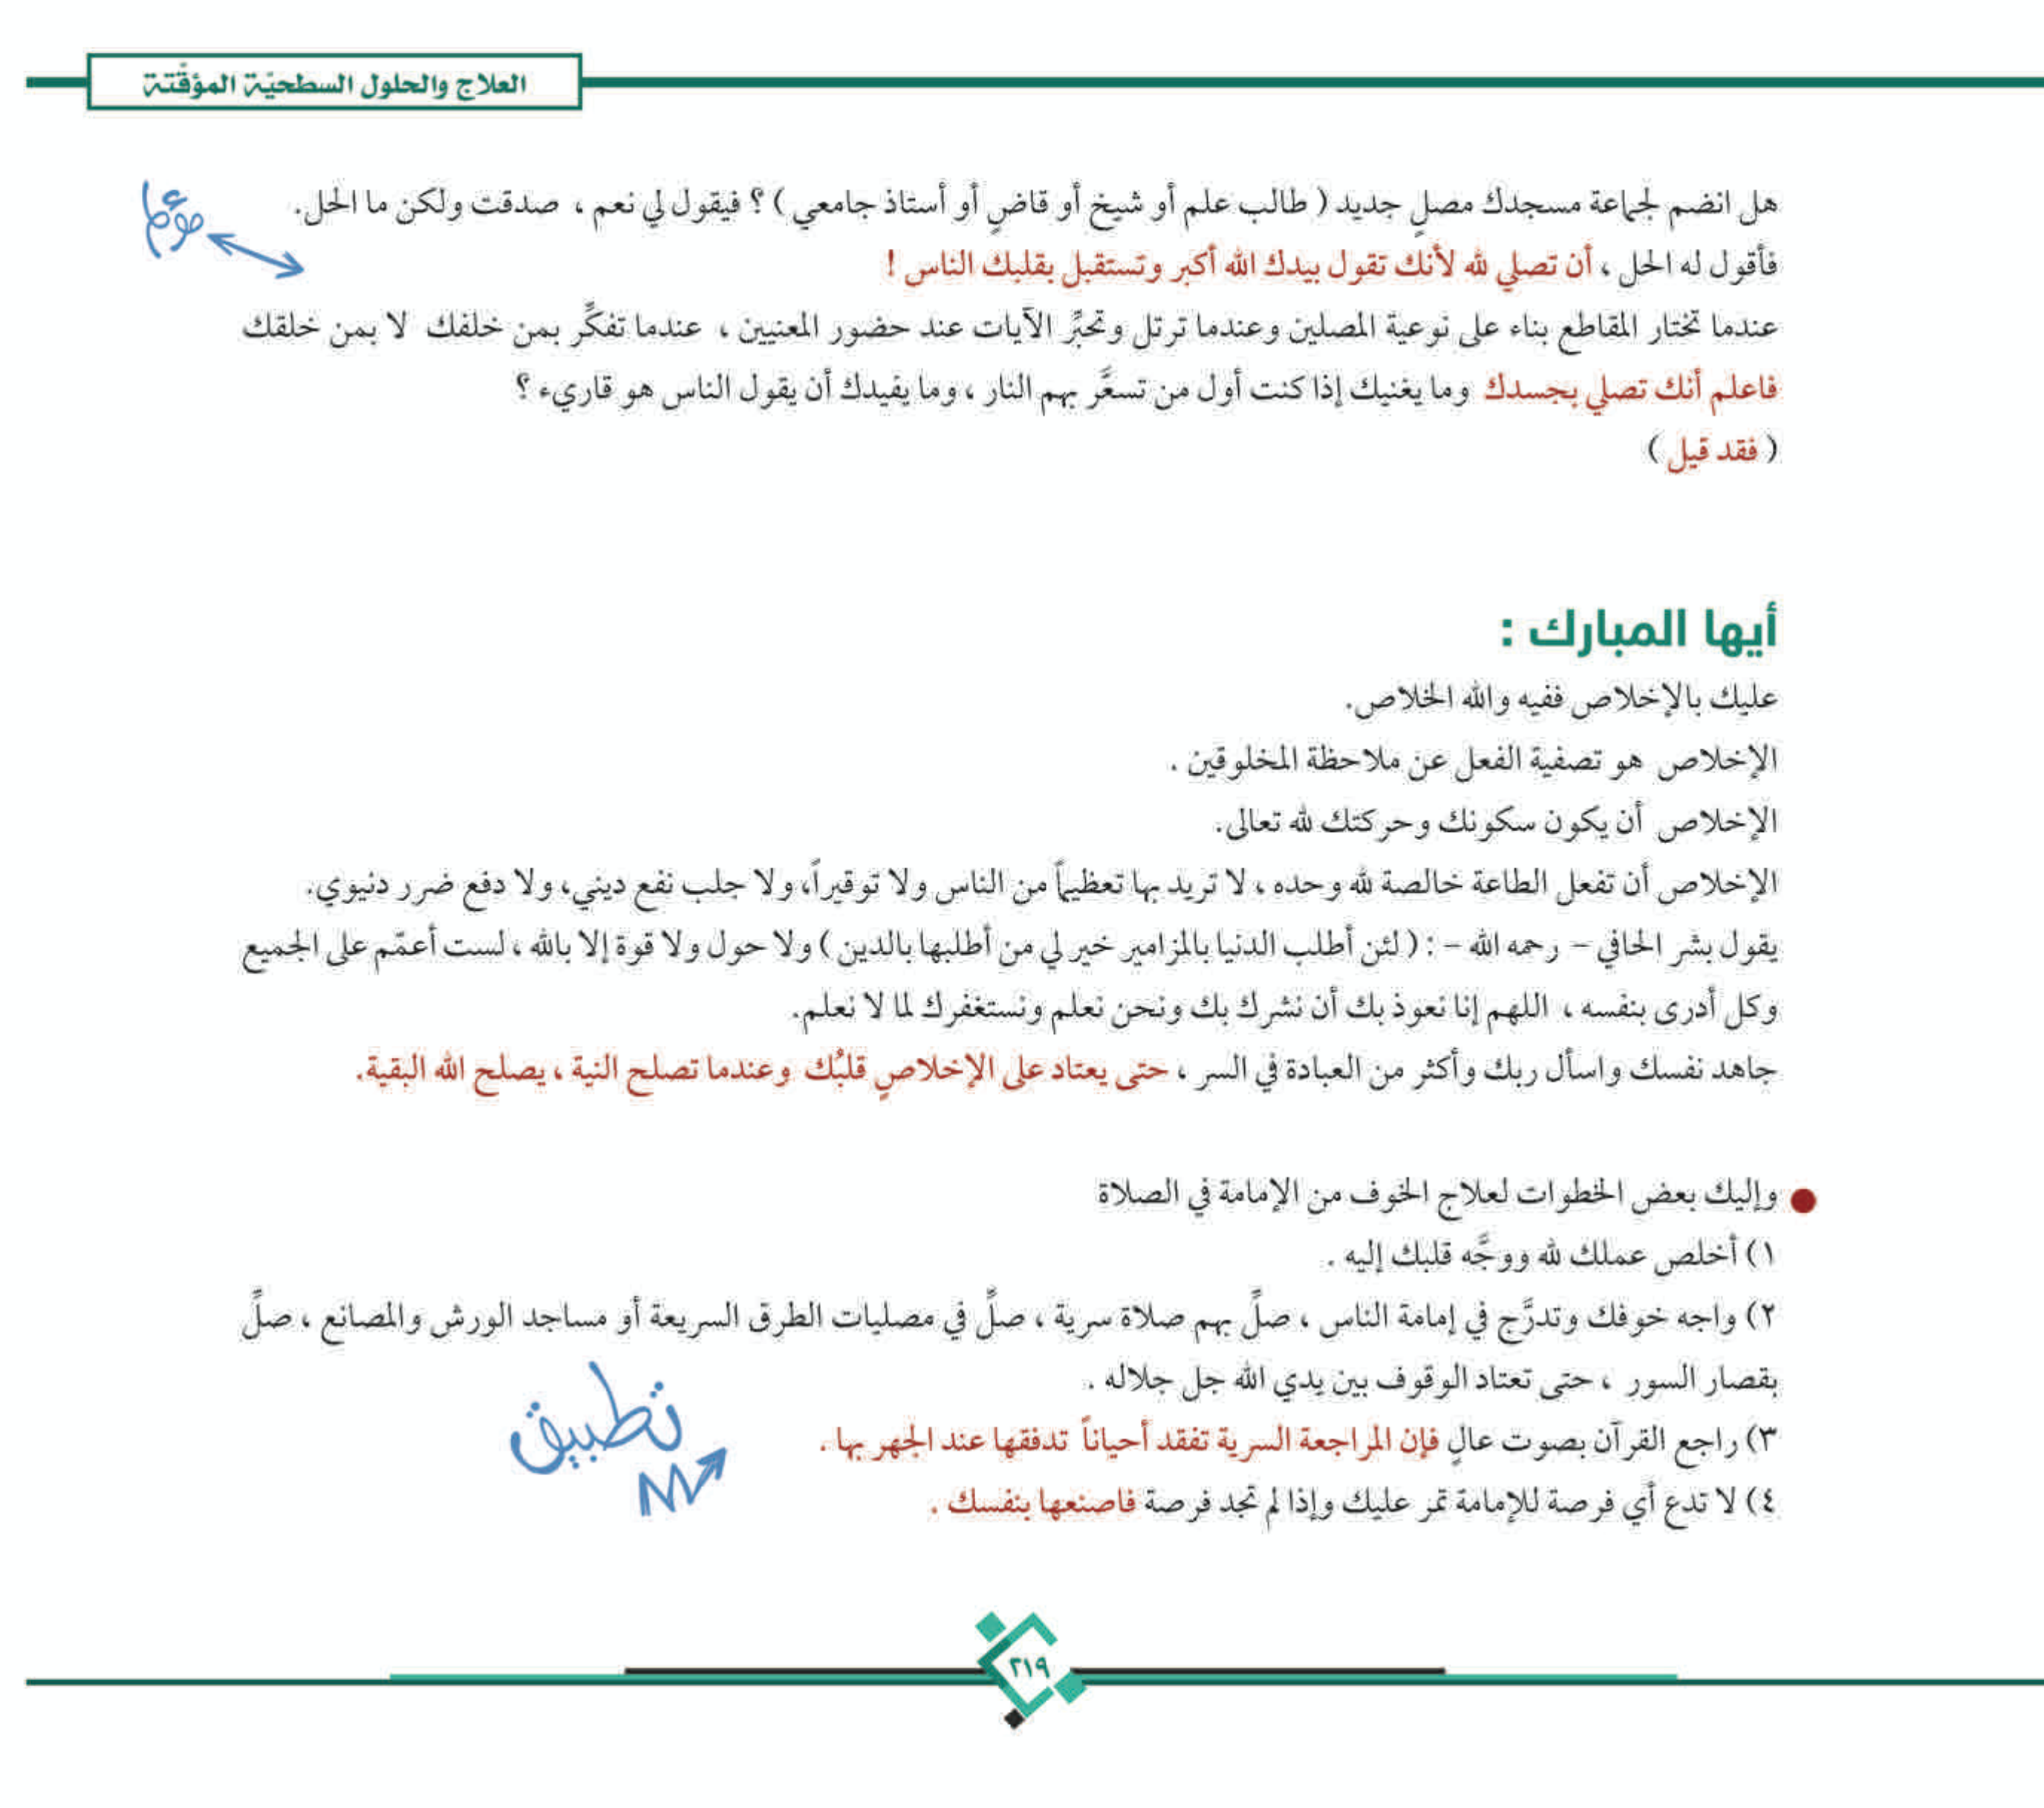 العلاج والحلول السطحيّة المؤقّتة
هل انضم لجماعة مسجدك مصلٍ جديد ( طالب علم أو شيخ أو قاضٍ أو أستاذ جامعي ) ؟ فيقول لي نعم ، صدقت ولكن ما الحل.
فأقول له الحل ، أن تصلي لله لأنك تقول بيدك الله أكبر وتستقبل بقلبك الناس !
عندما تختار المقاطع بناء على نوعية المصلين وعندما ترتل وتحبِّر الآيات عند حضور المعنيين ، عندما تفكِّر بمن خلفك لا بمن خلقك
فاعلم أنك تصلي بجسدك وما يغنيك إذا كنت أول من تسعَّر بهم النار ، وما يفيدك أن يقول الناس هو قاريء ؟
( فقد قيل )
أيها المبارك :
عليك بالإخلاص ففيه والله الخلاص.
الإخلاص هو تصفية الفعل عن ملاحظة المخلوقين .
الإخلاص أن يكون سكونك وحركتك لله تعالى.
الإخلاص أن تفعل الطاعة خالصة لله وحده ، لا تريد بها تعظيماً من الناس ولا توقيراً، ولا جلب نفع ديني، ولا دفع ضرر دنيوي.
يقول بشر الحافي – رحمه الله – : ( لئن أطلب الدنيا بالمزامير خير لي من أطلبها بالدين ) ولا حول ولا قوة إلا بالله ، لست أعمّم على الجميع
وكل أدرى بنفسه ، اللهم إنا نعوذ بك أن نشرك بك ونحن نعلم ونستغفرك لما لا نعلم.
جاهد نفسك واسأل ربك وأكثر من العبادة في السر ، حتى يعتاد على الإخلاصِ قلبُك وعندما تصلح النية ، يصلح الله البقية.
● وإليك بعض الخطوات لعلاج الخوف من الإمامة في الصلاة
١) أخلص عملك لله ووجَّه قلبك إليه .
٢) واجه خوفك وتدرَّج في إمامة الناس ، صلِّ بهم صلاة سرية ، صلِّ في مصليات الطرق السريعة أو مساجد الورش والمصانع ، صلِّ
بقصار السور ، حتى تعتاد الوقوف بين يدي الله جل جلاله .
تطبيق
٣) راجع القرآن بصوت عالٍ فإن المراجعة السرية تفقد أحياناً تدفقها عند الجهر بها .
٤) لا تدع أي فرصة للإمامة تمر عليك وإذا لم تجد فرصة فاصنعها بنفسك .
٢١٩